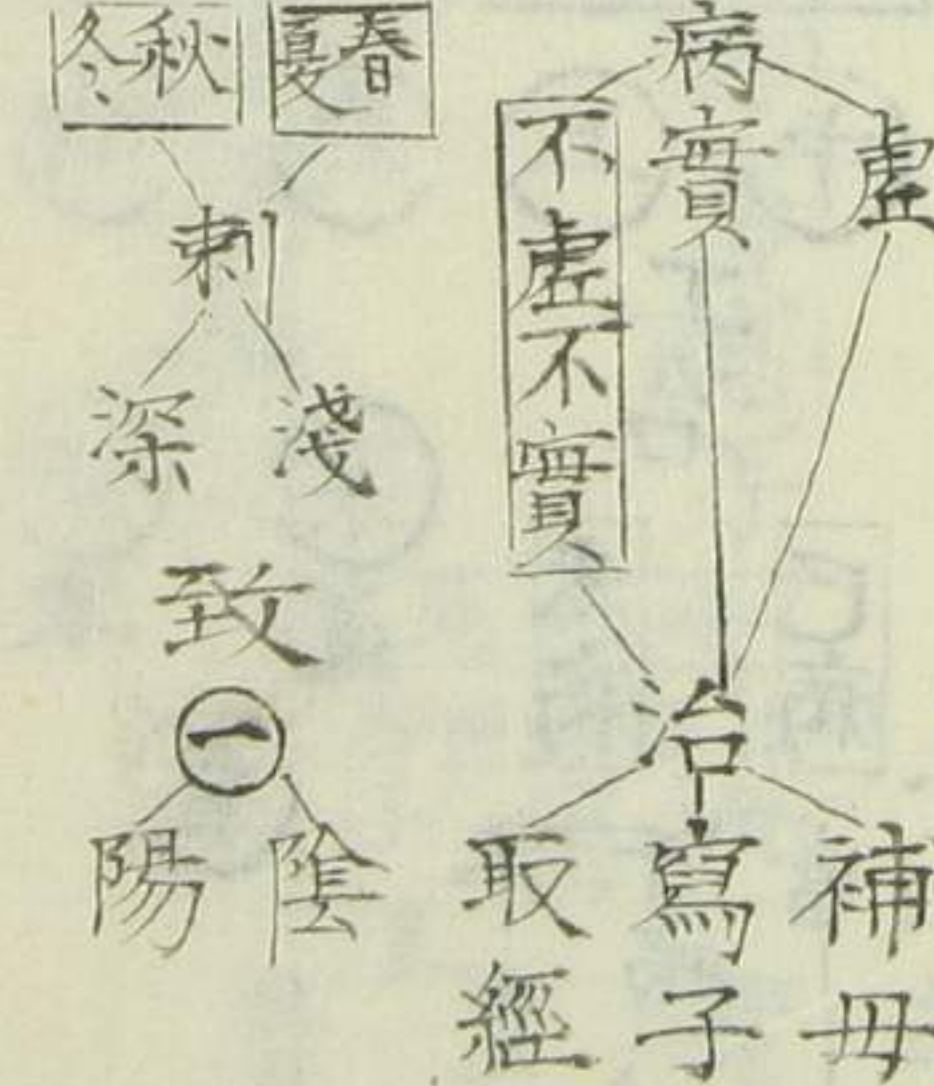 病
虛
實
不虛不實
治
補母
寫子
取經
春夏
秋冬
刺
淺
深
致
一
陰
陽